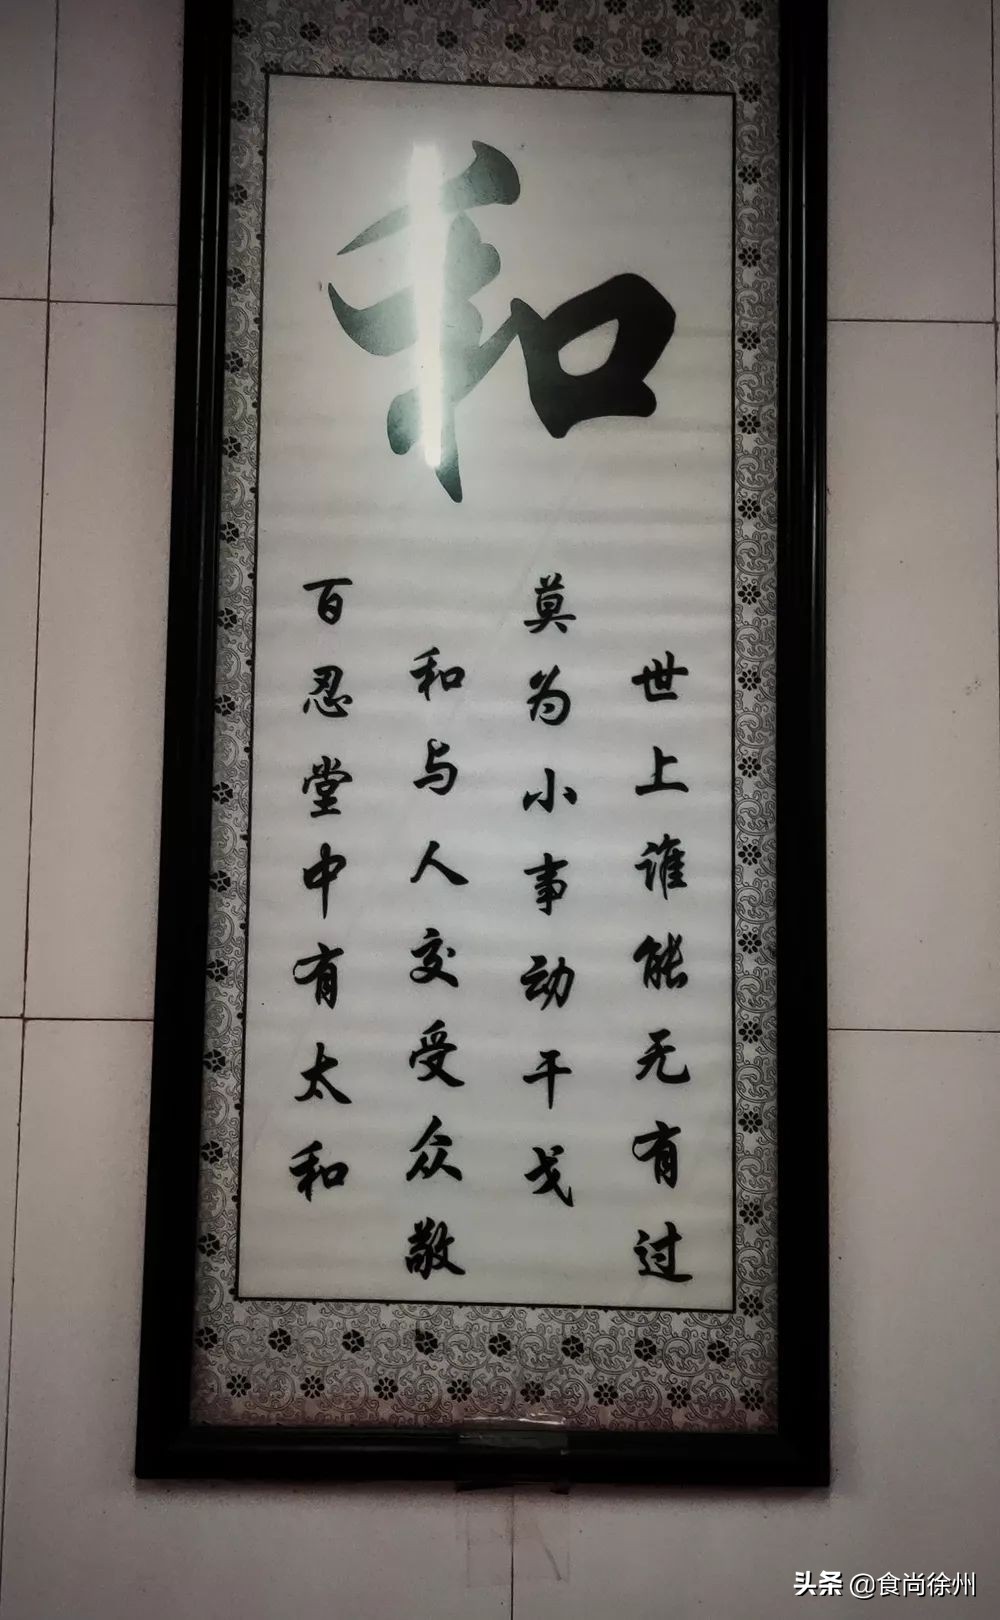 和
世上谁能无有过
莫为小事动干戈
和与人交受众敬
百忍堂中有太和
头条 @食尚徐州